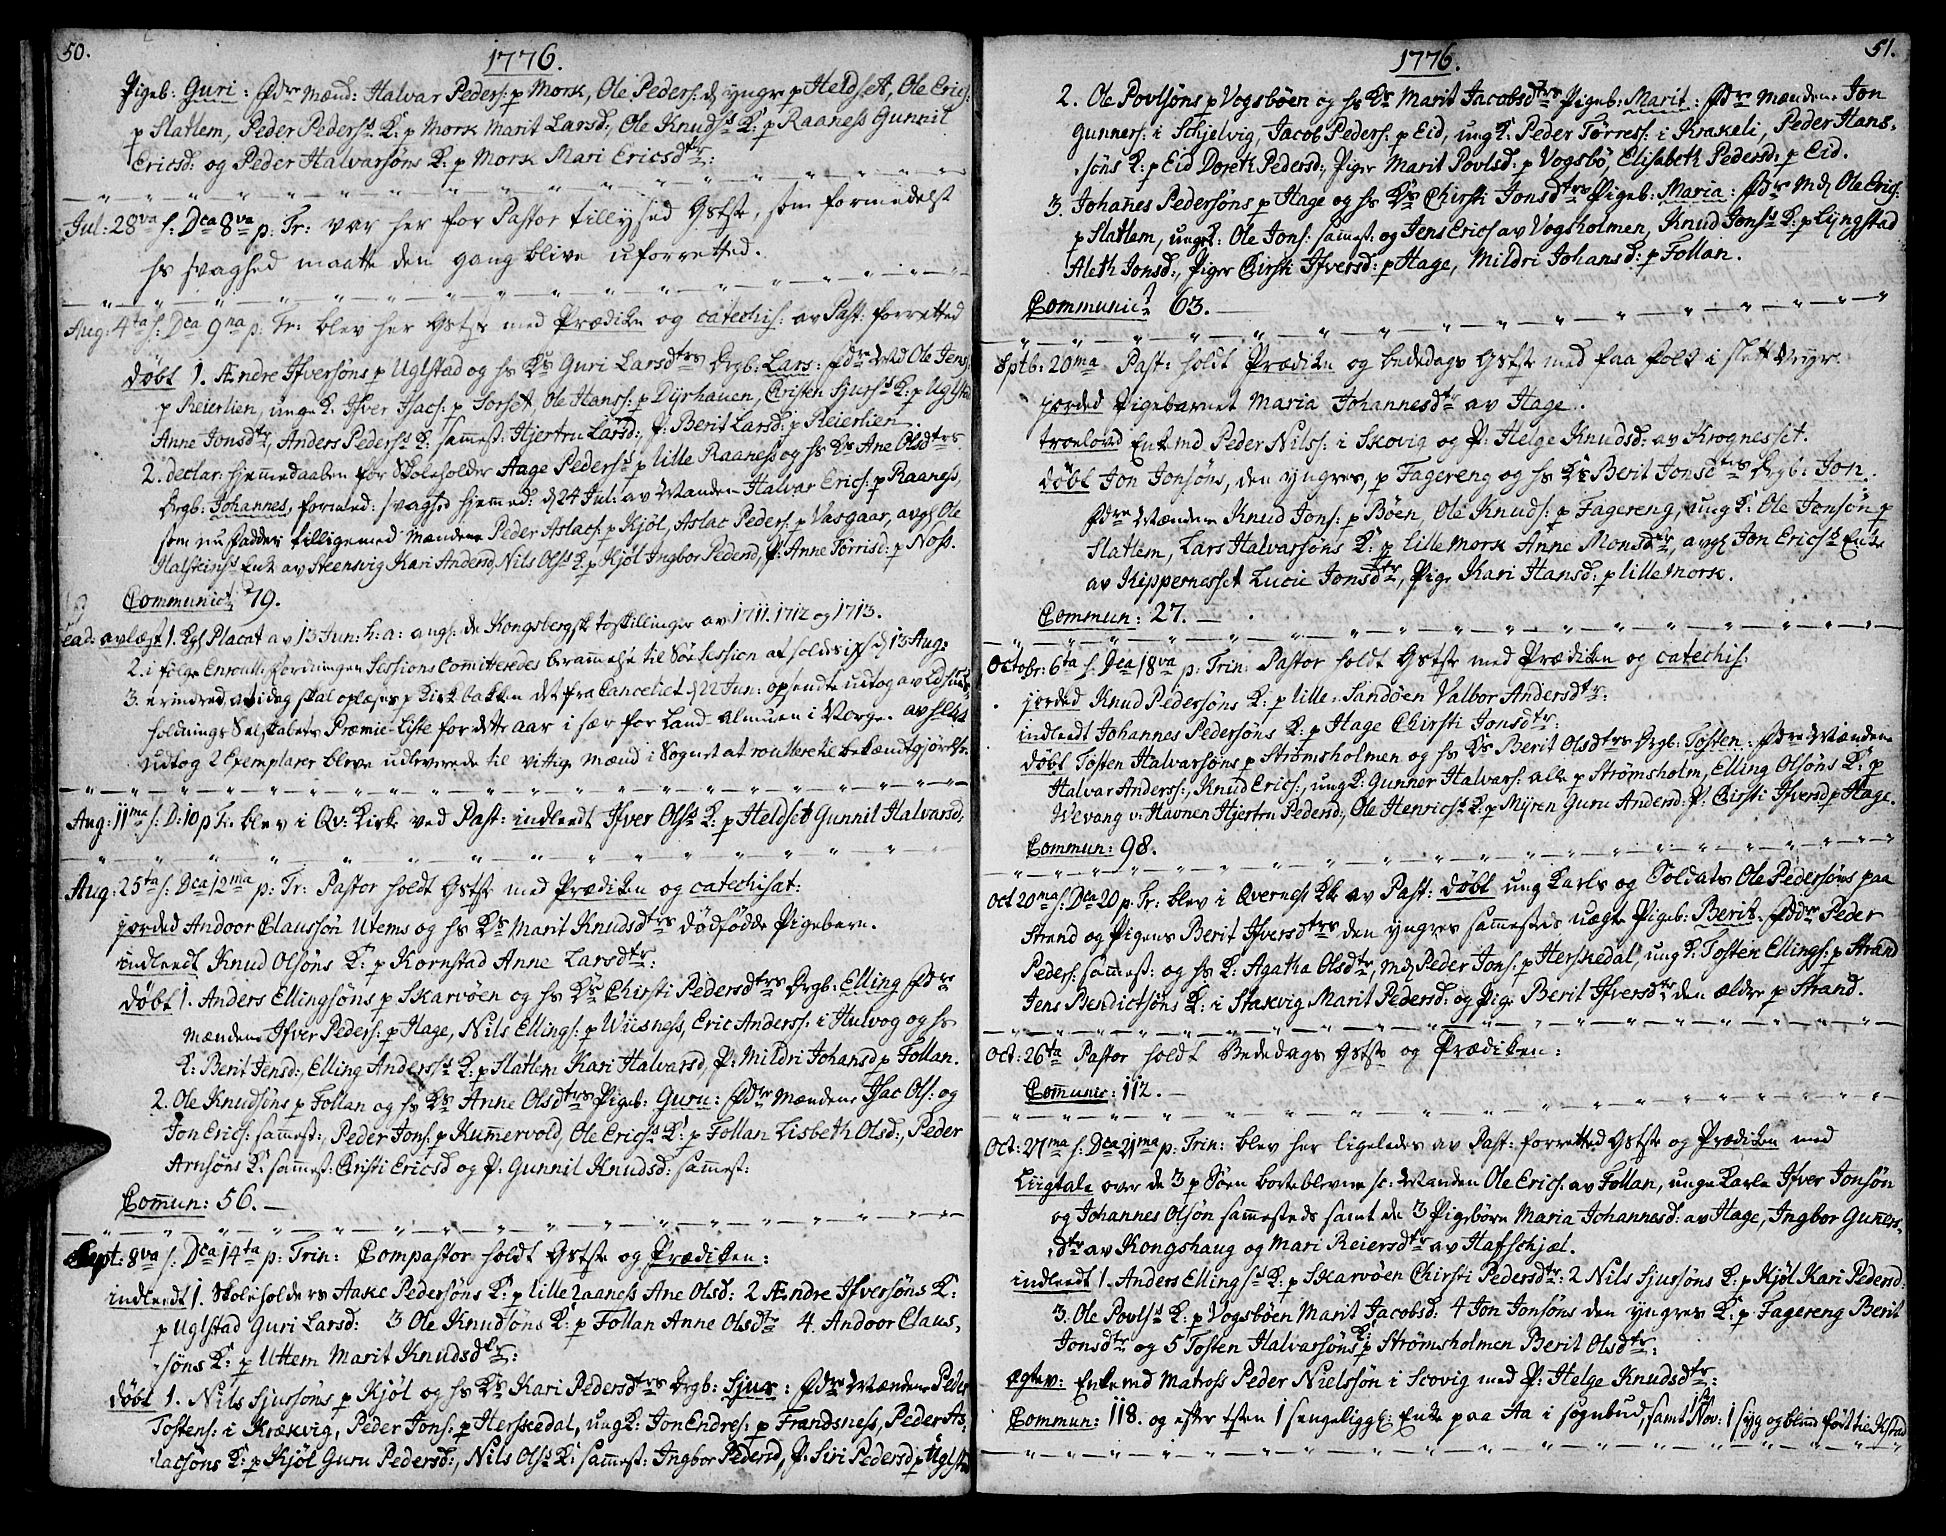 50.
1776.
Pigeb: Guri: Fdre Mænd: Halvar Peders: p Mork, Ole Peders: d yngr p Heldset, Ole Erics:
p Slatlem, Peder Pederss K: p Mork Marit Larsd:, Ole Knudss K: p Raaness Gunnil
Ericsd: og Peder Halvarsöns K: p Mork Mari Ericsdtr:
Jul: 28va s: Dca 8va p: Tr: var her for Pastor tillyset Gstste, som formedelst
hs svaghed maatte den gang blive uforretted.
Aug: 4ta s: Dca 9na p: Tr: blev her Gstste med Prædiken og catechis: av Past: forretted
döbt 1. Ændre Ifversöns p Uglstad og hs Ks Guri Larsdtrs Drgb: Lars: fdre Md Ole Jens:
p Reierlien, unge K: Ifver Isacs: p Sorset, Ole Hanss: p Dyrhauen, Cristen Sjurss K: p Uglstad
Anne Jonsdtr, Anders Pederss K: samest: Hjertru Larsd:, P: Berit Larsd: p Reierlien.
2. declar: hjemmedaaben for Skoleholder Aage Pederss p lille Raaness og hs Ks Ane Olsdtrs
Drgb: Johannes, formed: svaghed hjemmed: d 24 Jul: av Manden Halvar Erics: p Raaness,
som nu fadder tilligemed Mændene Peder Aslacs: p Kjöl, Aslac Peders: p Vasgaar, avgl Ole
Halsteinss Enk av Steensvig Kari Andersd, Nils Olss K: p Kjöl Ingbor Pedersd, P: Anne Törrisd: p Noss.
Communict 79.
avlæst 1. Kgl Placat av 13 Jun: h: a: angl: de Kongsbergsk toskillinger av 1711. 1712 og 1713.
2. i fölge Enroull: fordningen Sessions Comiteredes berammelse til Söe Session at holdes d 13 Aug:
3. erindred at i dag skal oplæses p Kirkebakken det fra Canceliet d 22 Jun: opsendte udtog av Lds huus-
holdnings Selskabets Præmie-Liste for dette aar i sær for Land Almuen i Norge. av hvilket
udtog 2 Exemplarer bleve udleverede til vittige Mænd i Sognet at roullere til bekændtgjörelse.
Aug: 11ma s: D: 10 p Tr: blev i Qv: Kirke ved Past: indleedt Ifver Olss K: p Heldset Gunnil Halvarsd:
Aug: 25ta s: Dca 12ma p: Tr: Pastor holdt Gstste med Prædiken og catechisat:
jorded Andoor Claussön Utems og hs Ks Marit Knudsdtrs dödfödde Pigebarn.
indleedt Knud Olsöns K: p Kornstad Anne Larsdtr:
döbt 1. Anders Ellingsöns p Skarvöen og hs Ks Chirsti Pedersdtrs Drgb: Elling Fdre
Mændene Ifver Peders: p Hage, Nils Ellings: p Wiisness, Eric Anderss: i Hulvog og hs
K: Berit Jensd:, Elling Anderss K: p Slatlem Kari Halvarsd, P: Mildri Johansd p Follan.
2. Ole Knudsöns p Follan og hs Ks Anne Olsdtrs Pigeb: Guru: Fdre Mændene Isac Ols: og
Jon Erics: samest:, Peder Jons: p Kummervold, Ole Ericss K: p Follan Lisbeth Olsd:, Peder
Arnsöns K: samest: Christi Ericsd og P: Gunnil Knudsd: samest:
Commun: 56.
Sept: 8va s: Dca 14ta p: Trin: Compastor holdt Gstste og Prædiken:
indleedt 1. Skoleholders Aake Pedersöns K: p lille Raaness Ane Olsd: 2 Ændre Ifversöns K:
p Uglstad Guri Larsd: 3 Ole Knudsöns K: p Follan Anne Olsdtr 4. Andoor Claus-
söns K: p Uttem Marit Knudsdtr:
döbt 1. Nils Sjursöns p Kjöl og hs Ks Kari Pedersdtrs Drgb: Sjur: Fdre Mændene Peder
Tostens: i Krækvig, Peder Jons: p Herskedal, ung K: Jon Endres: p Frandsness, Peder As-
lacsöns K: p Kjöl Guru Pedersd:, Nils Olss K: samest: Ingbor Pedersd, P: Siri Pedersd p Uglstad
51.
1776.
2. Ole Povlsöns p Vogsböen og hs Ks Marit Jacobsdtrs Pigeb: Marit: Fdre Mændene Jon
Gunners: i Schjelvig, Jacob Peders: p Eid, ung K: Peder Törres: i Krakeli, Peder Hans-
söns K: p Eid Doreth Pedersd:, Piger Marit Povlsd: p Vogsbö, Elisabeth Pedersd: p Eid.
3. Johanes Pedersöns p Hage og hs Ks Chirsti Jonsdtrs Pigeb: Maria: Fdre Md Ole Erics:
p Slatlem, unge K: Ole Jons: samest: og Jens Erics av Vogsholmen, Knud Jonss K: p Lyngstad
Aleth Jonsd:, Piger Chirsti Ifversd: p Hage, Mildri Johansd: p Follan.
Communict 63.
Sptb: 20ma Past: holdt Prædiken og bededags Gstste med faa folk i slett Veyr.
jorded Pigebarnet Maria Johannesdtr av Hage.
troelovd Enkemd Peder Nilss: i Skovig og P: Helge Knudsd: av Krognesset.
döbt Jon Jonsöns, den yngres, p Fagereng og hs Ks Berit Jonsdtrs Drgb: Jon.
Fdre Mændene Knud Jons: p Böen, Ole Knuds: p Fagereng, ung K: Ole Jonsön p
Slatlem, Lars Halvarsöns K: p lille Mork Anne Monsdtr, avgl Jon Ericss Enke
av Kippernesset Lucie Jonsdtr, Pige Kari Hansd: p lille Mork.
Commun: 27.
Octobr: 6ta s: Dca 18va p: Trin: Pastor holdt Gstste med Prædiken og catechis:
jorded Knud Pedersöns K: p lille-Sandöen Valbor Andersdtr:
indleedt Johannes Pedersöns K: p Hage Chirsti Jonsdtr:
döbt Tosten Halvarsöns p Strömsholmen og hs Ks Berit Olsdtrs Drgb: Tosten: Fdre Mændene
Halvar Anderss:, Knud Erics:, ung K: Gunner Halvars: alle p Strömsholm, Elling Olsöns K: p
Wevang v: Havnen Hjertru Pedersd:, Ole Henricss K: p Myren Guru Andersd: P: Chirsti Ifversd p Hage.
Commun: 98.
Oct 20ma s: Dca 20 p: Tr: blev i Qvernes Kk av Past: döbt ung Karls og Soldats Ole Pedersöns paa
Strand og Pigens Berit Ifversdtrs den yngres sammesteds uægte Pigeb: Berit. Fddre Peder
Peders: samest: og hs K: Agatha Olsdtr, Md Peder Jons: p Herskedal, ung K: Tosten Ellings: p Strand
Jens Bendictsöns K: i Stakvig Marit Pedersd: og Pige Berit Ifversdtr den ældre p Strand.
Oct: 26ta Pastor holdt Bededags Gstste og Prædiken:
Communic: 112.
Oct: 27ma s: Dca 21ma p: Trin: blev her ligeledes av Past: forretted Gstste og Prædiken med
Liigtale over de 3 p Söen bortblevne sc: Manden Ole Erics: av Follan, unge Karle Ifver Jonsön
og Johannes Olsön sammesteds samt de 3 Pigebörn Maria Johannesd: av Hage, Ingbor Guners-
dtr av Kongshaug og Mari Reiersdtr av Hafschjel.
indleedt 1. Anders Ellingss K: p Skarvöen Chirsti Pedersdtr: 2 Nils Sjursöns K: p Kjöl Kari Pedersd:
3. Ole Povlss K: p Vogsböen Marit Jacobsd: 4 Jon Jonsöns den yngres K: p Fagereng Berit
Jonsdtr og 5 Tosten Halvarsöns K: p Strömsholmen Berit Olsdtr:
ægtev: Enkemd Matross Peder Nielssön i Scovig med P: Helge Knudsdtr:
Commun: 118. og efter tsten 1 sengeliggl: Enke paa Aa i sognbud, samt Nov: 1 syg og blind